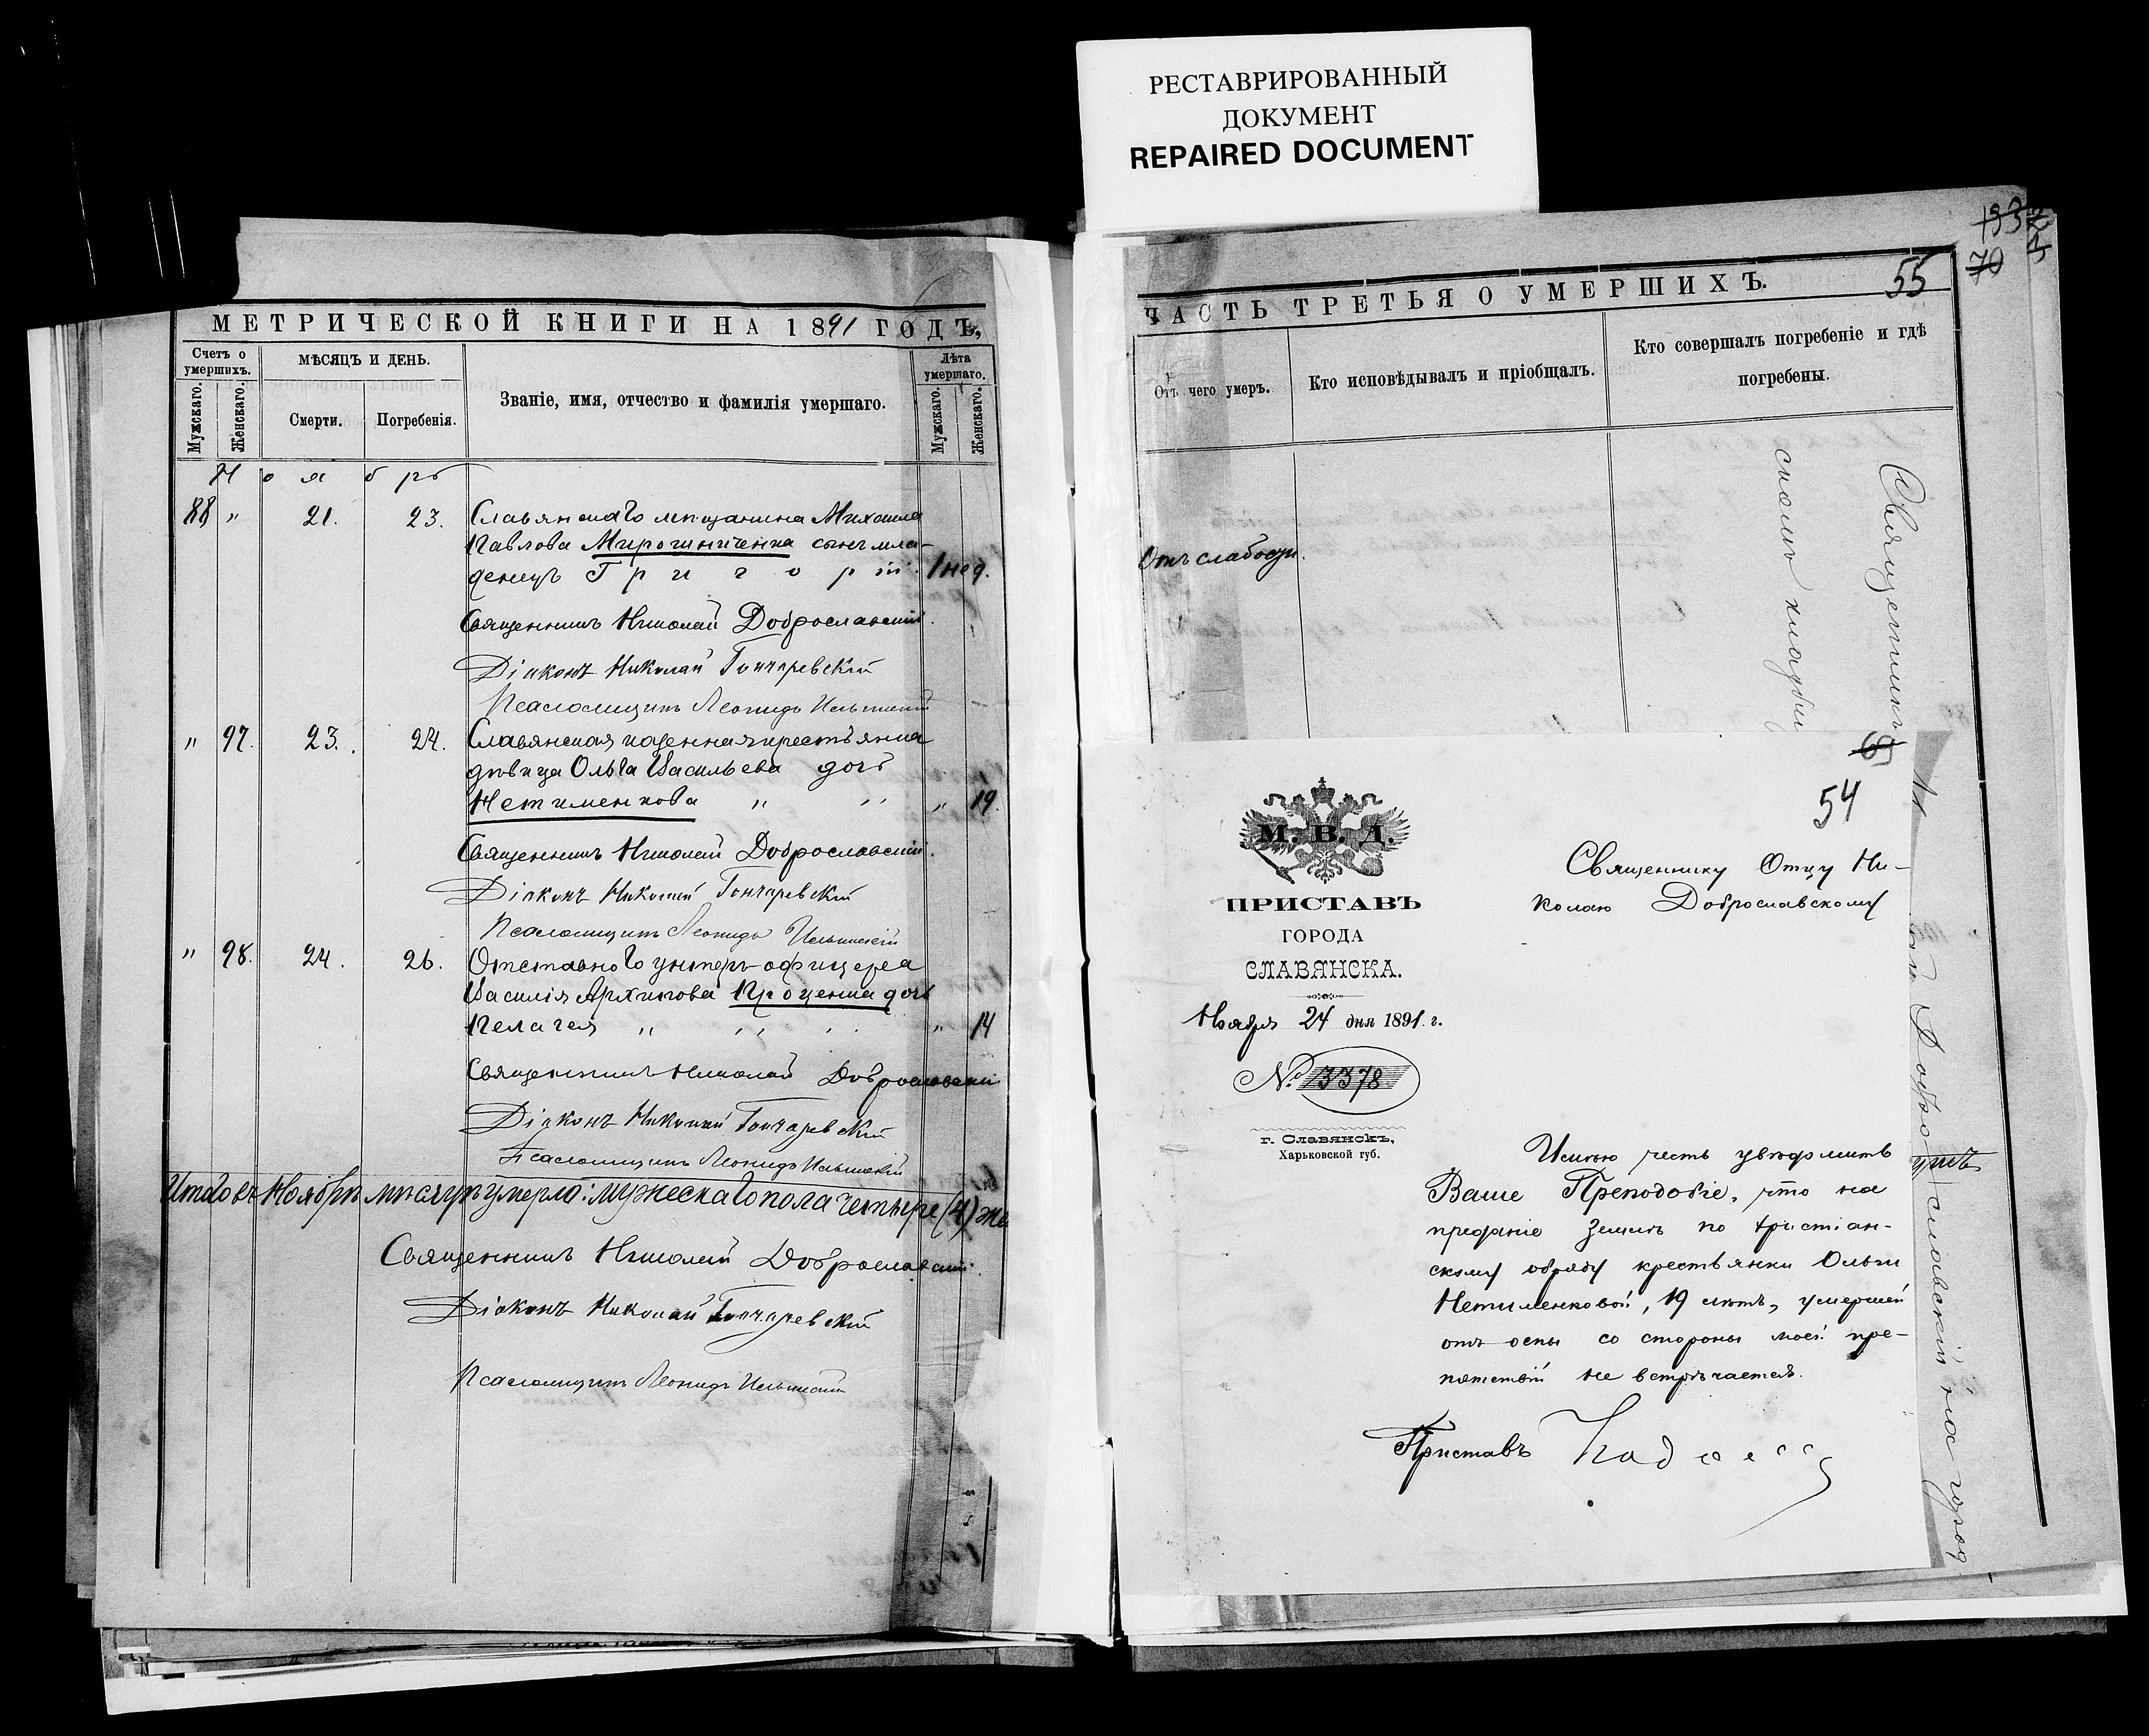 РЕСТАВРИРОВАННЫЙ
ДОКУМЕНТ
REPAIRED DOCUMENT
МЕТРИЧЕСКОЙ КНИГИ НА 1891 ГОДЪ,
Счетъ о умершихъ.
Мужскаго.
Женскаго.
МѢСЯЦЪ И ДЕНЬ.
Смерти.
Погребенія.
Званіе, имя, отчество и фамилія умершаго.
Лѣта умершаго.
Мужскаго.
Женскаго.
Ноябрь
88 „ 21. 23. Славянскаго мѣщанина Михаила
Павлова Мирошниченка сынъ мла-
денецъ Григорій. 1 нед.
Священникъ Николай Доброславскій.
Діаконъ Николай Гончаревскій
Псаломщикъ Леонидъ Ильинскій
„ 97. 23. 24. Славянская казенная крестьянка
дѣвица Ольга Васильева дочь
Нетименкова „ „ „ 19.
Священникъ Николай Доброславскій.
Діаконъ Николай Гончаревскій
Псаломщикъ Леонидъ Ильинскій
„ 98. 24. 26. Отставного унтеръ-офицера
Василія Архипова Проценка дочь
Пелагея „ „ „ 14
Священникъ Николай Доброславскій
Діаконъ Николай Гончаревскій
Псаломщикъ Леонидъ Ильинскій
Итого въ Ноябрѣ мѣсяцѣ умерло: мужескаго пола четыре (4) же
Священникъ Николай Доброславскій.
Діаконъ Николай Гончаревскій
Псаломщикъ Леонидъ Ильинскій
ЧАСТЬ ТРЕТЬЯ О УМЕРШИХЪ.
55
70
Отъ чего умеръ.
Кто исповѣдывалъ и пріобщалъ.
Кто совершалъ погребеніе и гдѣ погребены.
Отъ слабости.
Священникъ
славскій на город
скомъ кладби
54
М. В. Д.
ПРИСТАВЪ
ГОРОДА
СЛАВЯНСКА.
Ноября 24 дня 1891 г.
№ 3378
г. Славянскъ,
Харьковской губ.
Священнику Отцу Ни-
колаю Доброславскому
Имѣю честь увѣдомить
Ваше Преподобіе, что на
преданіе землѣ по христіан-
скому обряду крестьянки Ольги
Нетименковой, 19 лѣтъ, умершей
отъ оспы со стороны моей пре-
пятствій не встрѣчается.
Приставъ